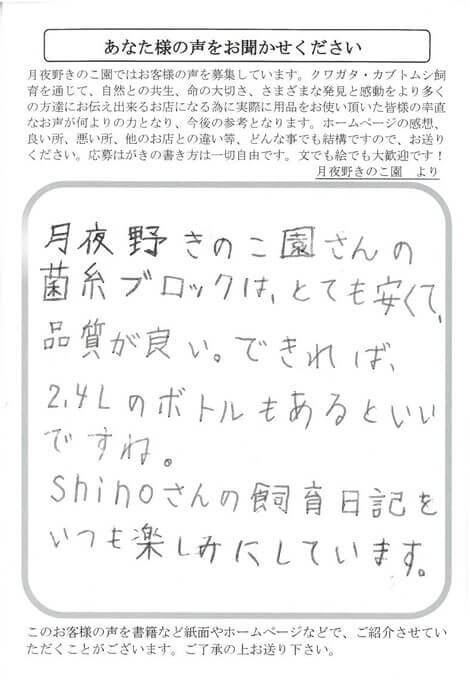 あなた様の声をお聞かせください
月夜野きのこ園ではお客様の声を募集しています。クワガタ・カブトムシ飼
育を通じて、自然との共生、命の大切さ、さまざまな発見と感動をより多く
の方達にお伝え出来るお店になる為に実際に用品をお使い頂いた皆様の率直
なお声が何よりの力となり、今後の参考となります。ホームページの感想、
良い所、悪い所、他のお店との違い等、どんな事でも結構ですので、お送り
ください。応募はがきの書き方は一切自由です。文でも絵でも大歓迎です！
月夜野きのこ園　より
月夜野きのこ園さんの
菌糸ブロックは、とても安くて、
品質が良い。できれば、
2,4Lのボトルもあるといい
ですね。
shinoさんの飼育日記を
いつも楽しみにしています。
このお客様の声を書籍など紙面やホームページなどで、ご紹介させてい
ただくことがございます。ご了承の上お送り下さい。